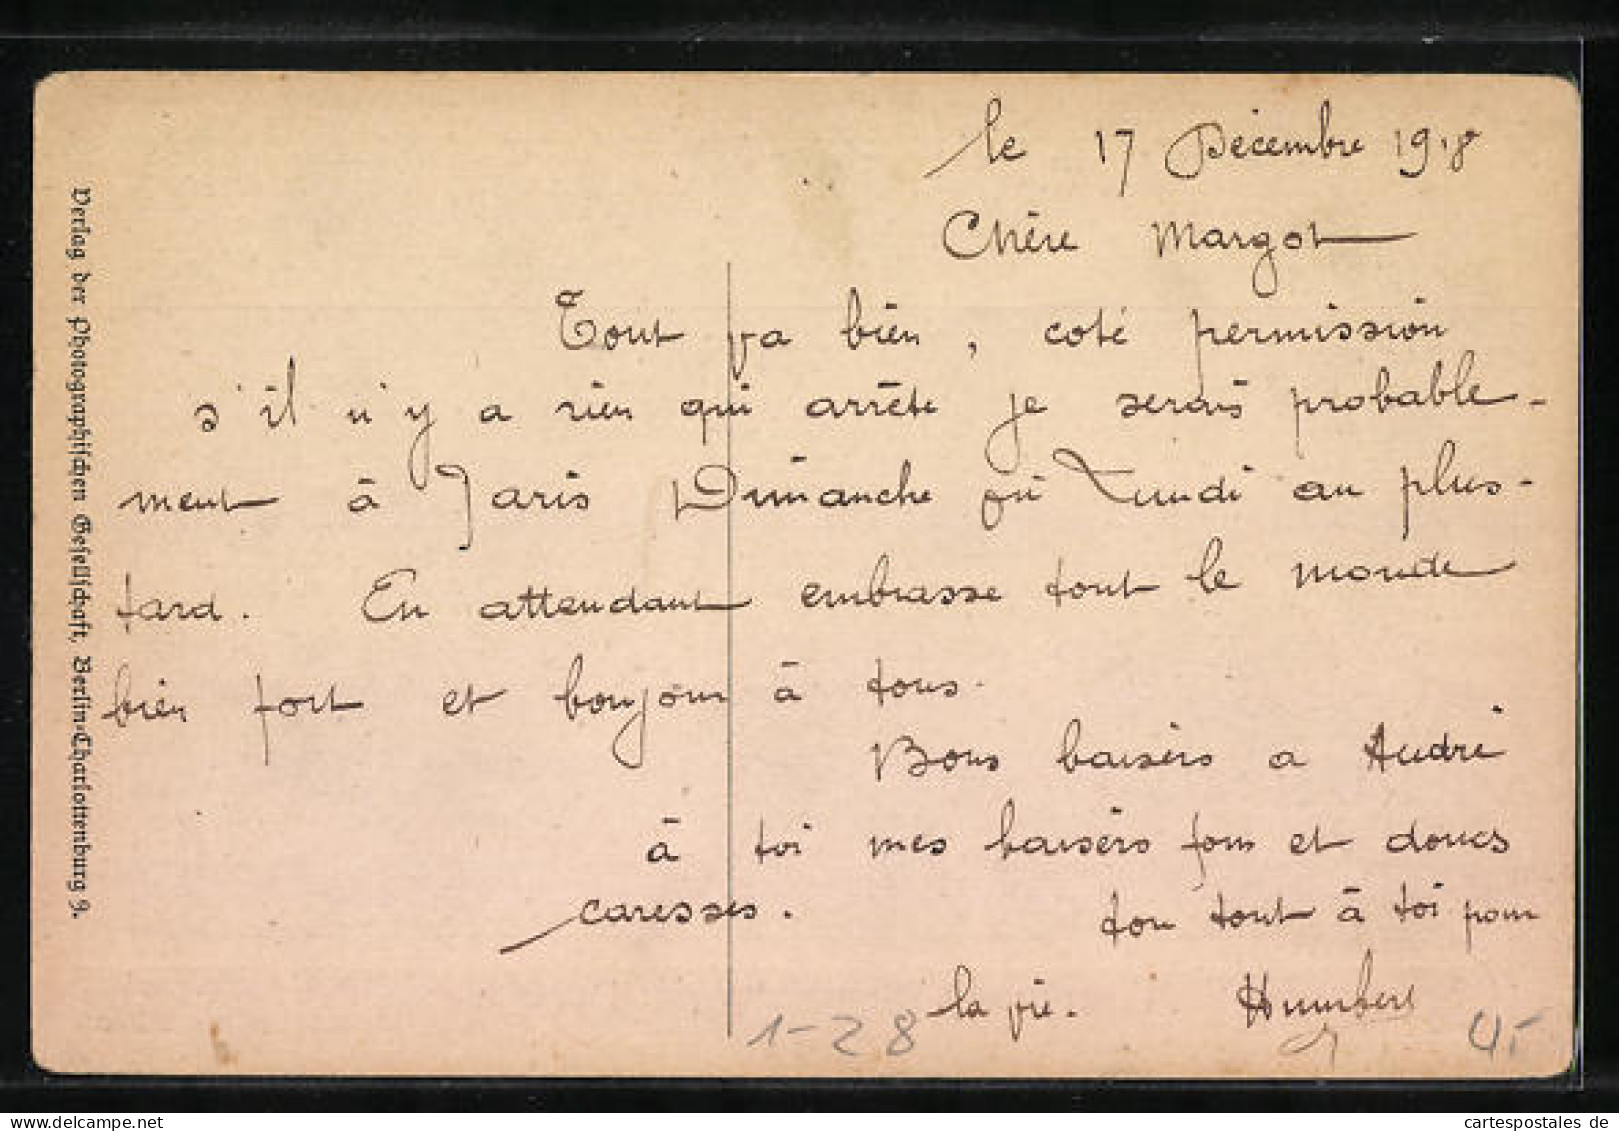 le 17 Décembre 1918
Chère Margot
Tout va bien, coté permission
s'il n'y a rien qui arrête je serais probable-
ment à Paris Dimanche ou Lundi au plus-
tard. En attendant embrasse tout le monde
bien fort et bonjour à tous.
Bons baisers a André
à toi mes baisers fous et douces
caresses. ton tout à toi pour
la vie. Humbert
1-28
4,-
Verlag der Photographischen Gesellschaft, Berlin-Charlottenburg 9.
cartespostales.de